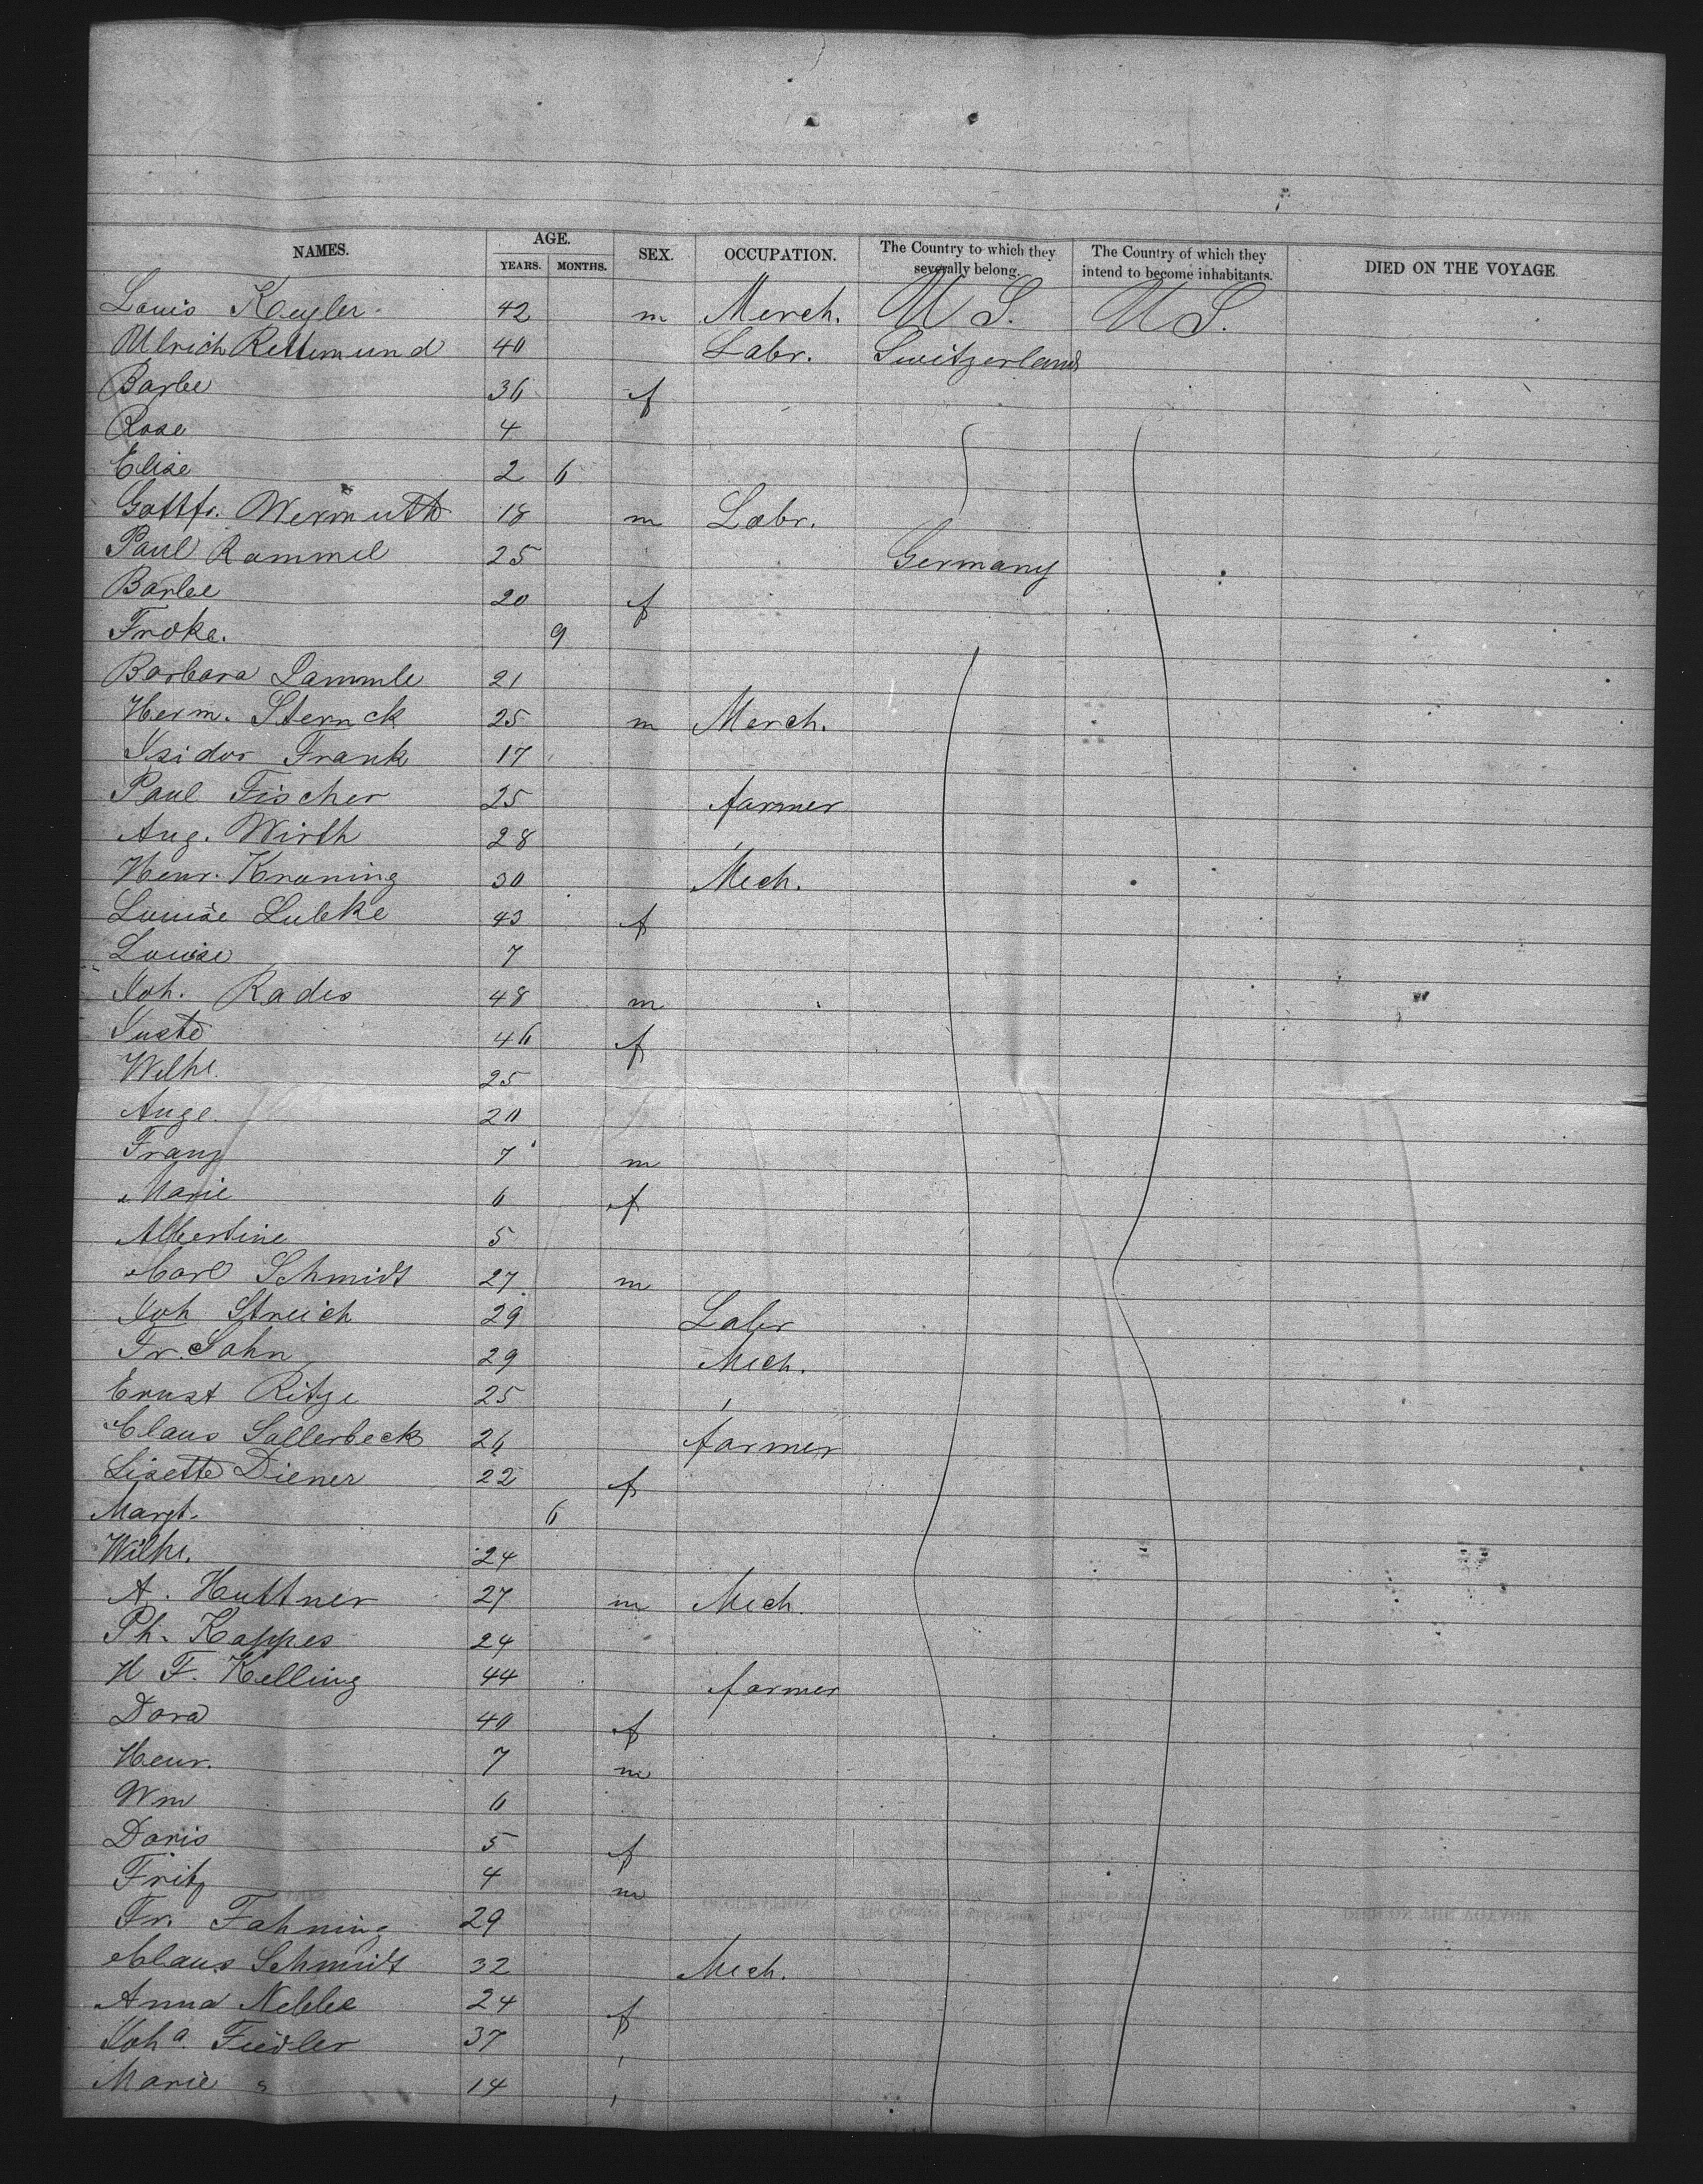 NAMES. AGE. SEX. OCCUPATION. The Country to which they severally belong. The Country of which they intend to become inhabitants. DIED ON THE VOYAGE.
YEARS. MONTHS.
Louis Keyler 42 m Merch. U S. U S.
Ulrich Rettimund 40 Labr. Switzerland
Barbe 36 f
Rosa 4
Elise 2 6
Gottfr. Wermuth 18 m Labr.
Paul Rammel 25 Germany
Barbe 20 f
Froka. 9
Barbara Lammle 21
Herm. Sternck 25 m Merch.
Isidor Frank 17
Paul Fischer 25 farmer
Aug. Wirth 28 "
Henr. Kroning 30 Mech.
Louise Lubke 43 f
Louise 7
Joh. Rades 48 m
Juste 46 f
Wilhe. 25
Auge. 20
Franz 7 m
Marie 6 f
Albertine 5
Carl Schmidt 27 m
Joh Streich 29 Labr
Fr. Sahn 29 Mech.
Ernst Ritze 25 "
Claus Sallerbeck 26 farmer
Lisette Diener 22 f
Margt. 6
Wilhe. 24
A. Huttner 27 m Mech.
Ph. Kappes 24
H F. Kelling 44 farmer
Dora 40 f
Henr. 7 m
Wm 6
Doris 5 f
Fritz 4 m
Fr. Fahning 29
Claus Schmidt 32 Mech.
Anna Nebbe 24 f
Joha. Fiedler 37 "
Marie " 14 "